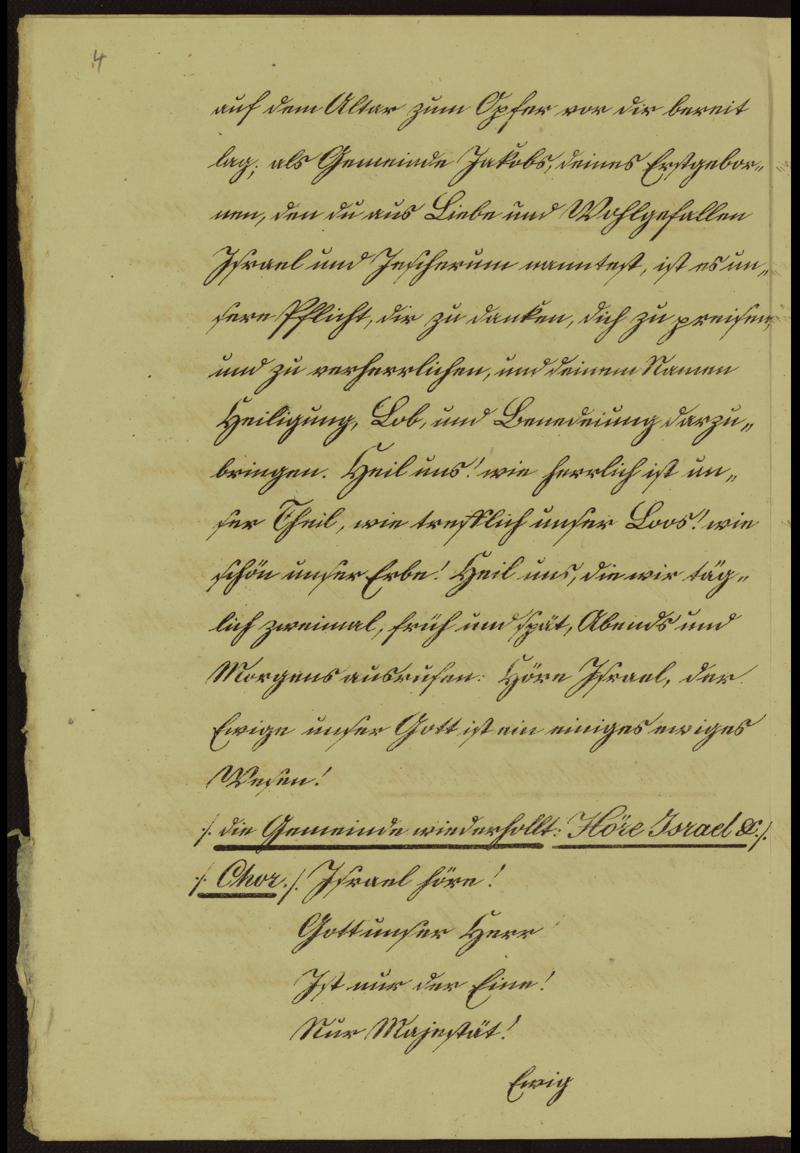 4
auf dem Altar zum Opfer vor dir bereit
lag; als Gemeinde Jakobs, deines Erstgebor„
nen, den du aus Liebe und Wohlgefallen
Israel und Jescherum nanntest, ist es un„
sere Pflicht, dir zu danken, dich zu preisen,
und zu verherrlichen, und deinem Namen
Heiligung, Lob, und Benedeiung darzu„
bringen. Heil uns! wie herrlich ist un„
ser Theil, wie trefflich unser Loos! wie
schön unser Erbe! Heil uns, die wir täg„
lich zweimal, früh und spät, Abends und
Morgens ausrufen: Höre Israel, der
Ewige unser Gott ist ein einiges ewiges
Wesen!
/. die Gemeinde wiederhollt: Höre Israel &./.
/. Chor./. Israel höre!
Gott unser Herr
Ist nur der Eine!
Nur Majestät!
Ewig